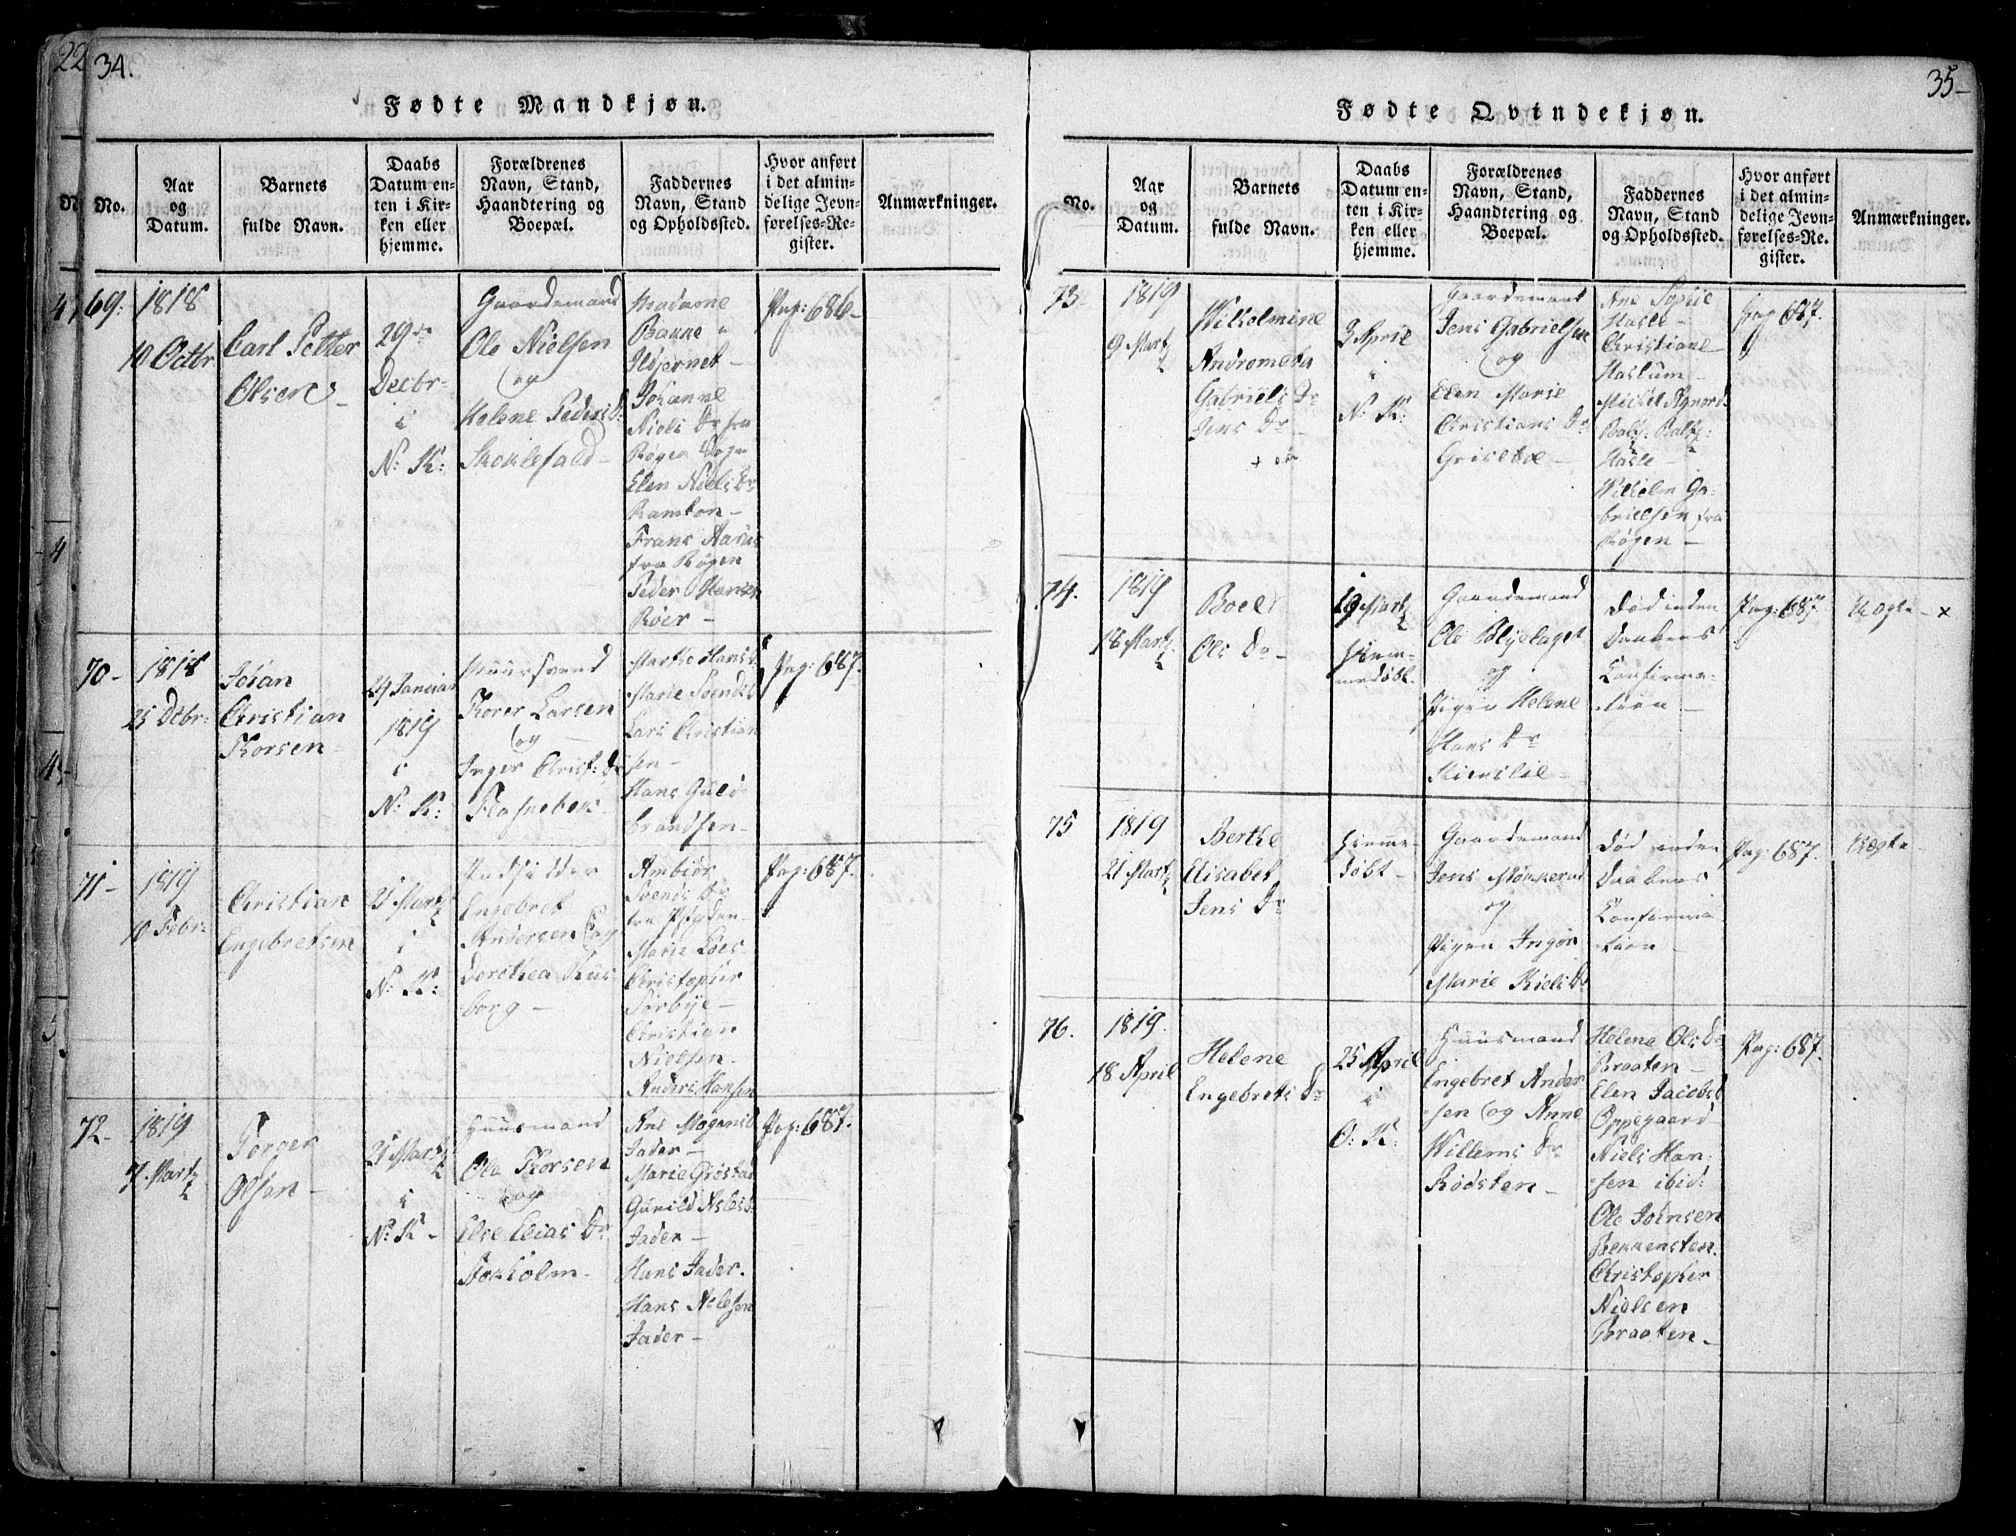 22
34.
Fødte Mandkjøn.
No.
Aar
og
Datum.
Barnets
fulde Navn.
Daabs
Datum en-
ten i Kir-
ken eller
hjemme.
Forældrenes
Navn, Stand,
Haandtering og
Boepæl.
Faddernes
Navn, Stand
og Opholdssted.
Hvor anført
i det almin-
delige Jevn-
førelses-Re-
gister.
Anmærkninger.
69.
1818
10 Octbr
Carl Petter
Olsen
29de
Decbr
i
N: K:
Gaardemand
Ole Nielsen
og
Helene Peders D:
Skoklefald
Madame
Ildjernet
Johanne
Niels Dr fra
Elen Niels Dr
Ramton
fra Røgen
Peder Hansen
Röer
Pag: 686
70
1818
25 Debr
Johan
Christian
Thorsen
24 Januar
1819
i
N: K:
Thorer Larsen
og
Inger Christ: Dr
Flaskebek
Marthe Hans D
Marie Svends D
Lars Christian
sen
Hans Guld-
brandsen
Pag: 687.
71
1819
10 Febr
Christian
Engebretsen
21 Martz
i
N: K:
Engebret
Andersen og
Dorthea Hus
borg
Svends Dr
Christopher
Sørbye
Christian
Nielsen
Anders Hansen
Pag: 687.
72
1819
7 Martz
Torger
Olsen
21 Martz
i
N: K
Huusmand
Ole Thorsen
og
Else Elias Dr
Stokholm
Jader
Marie Gröstad
Jader
Hans Jader
Hans Nilssen
Jader
Pag: 687.
35
Fødte Qvindekjøn.
No.
Aar
og
Datum.
Barnets
fulde Navn.
Daabs
Datum en-
ten i Kir-
ken eller
hjemme.
Forældrenes
Navn, Stand,
Haandtering og
Boepæl.
Faddernes
Navn, Stand
og Opholdssted.
Hvor anført
i det almin-
delige Jevn-
førelses-Re-
gister.
Anmærkninger.
73
1819
9 Martz
Wilhelmine
Andrometa
Gabriels Dr
Jens Dr
3 April
i
N: K:
Gaardemand
Jens Gabrielsen
og
Elen Marie
Christians Dr
Ane Sophie
Hasle
Christiane
Haslum
Hasle
Wilhelm Ga-
brielsen fra
Røgen
Pag 687.
74.
1819
18 Martz
Boel
Ols Dr
19 Martz
Hjem-
medöbt.
Gaardemand
Ole Blylaget
og
Pigen Helene
Hans Dr
Död inden
Daabens
Confirma-
tion
Pag: 687.
Uægte - x
75
1819
21 Martz
Berthe
Elisabet
Jens Dr
Hjemme-
döbt
Gaardemand
Jens
og
Pigen Ingör
Marie Niels Dr
Död inden
Daabens
Confirma-
tion
Pag: 687.
Uægte
76.
1819.
18 April
Helene
Engebrets Dr
25 April
i
O: K:
Huusmand
Engebret Ander
sen og Anne
Willems Dr
Rödsten
Helene Ols Dr
Braaten
Elen Jacobs D
Oppegaard
Niels Han-
sen ibid:
Ole Joensen
Bekkensten
Christopher
Nielsen
Braaten
Pag: 687.